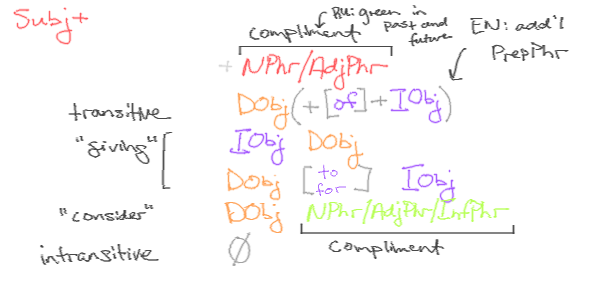 Subj+
compliment
RU: green in past and future
EN: add'l PrepPhr
+ NPhr/AdjPhr
transitive DObj (+ [of] + IObj)
"giving" IObj DObj
DObj [to for] IObj
"consider" DObj NPhr/AdjPhr/InfPhr
intransitive ∅ compliment